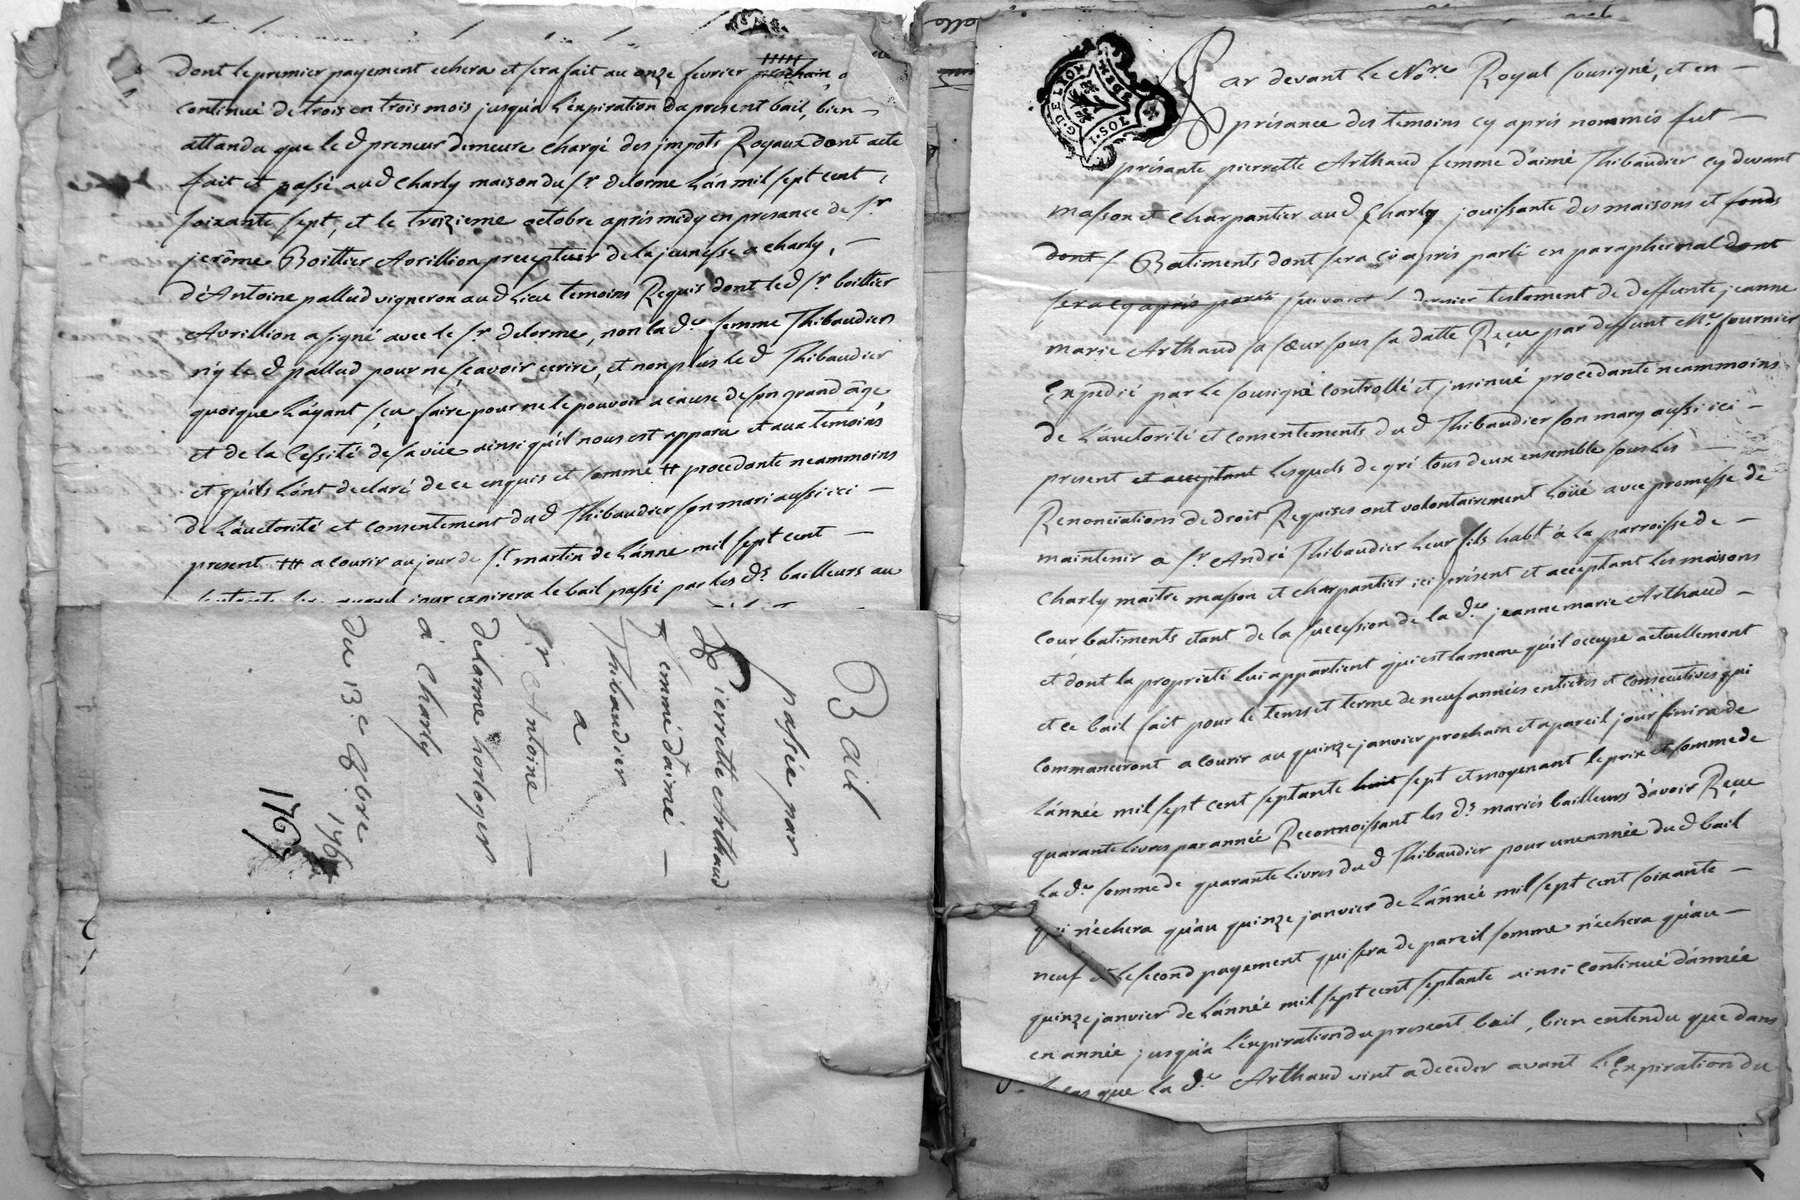 dont le premier payement echera et sera fait au onze fevrier prochain, a
continué de trois en trois mois jusqu'a l'expiration du present bail, bien
attandu que le d preneur demeure chargé des impots Royaux dont acte
fait et passé au d Charly maison du sr delorme L'an mil sept cent
soixante sept, et le treizieme octobre aprés midy en presance de sr
jerôme Boittier Avrillion precepteur de la jeunesse a charly,
d'Antoine pallud vigneron au d Lieu temoins Requis dont le d sr boittier
Avrillion a signé avec le sr delorme, non la de femme Thibaudier
n'y le d pallud pour ne sçavoir ecrire, et non plus le d Thibaudier
quoique L'ayant sçu faire pour ne le pouvoir a cause de son grand âge,
et de la Cessité de sa vüe ainsi qu'il nous est apparu et aux temoins
et qu'ils L'ont declaré de ce enquis et sommé # procedante neammoins
de L'auctorité et consentement du d Thibaudier son mari aussi ici
present a courir au jour de st martin de L'anne mil sept cent
jour expirera le bail passé par les ds bailleurs au
Bail
passée par
Pierrette Arthaud
femme d'aimé
Thibaudier
a
Sr Antoine
delorme horloger
à Charly
Du 13e 8bre 1767
1767
G. DE LYON
1. SOL
Par devant Le Nore Royal sousigné, et en
présance des temoins cy aprés nommés fut
présante pierrette Arthaud femme d'aimé Thibaudier cy devant
masson et Charpantier au d Charly jouissante des maisons et fonds
dont Batiments dont sera ci aprés parlé en paraphernal dont
sera cy aprés parlé suivant L dernier testament de deffunte jeanne
marie Arthaud sa sœur sous sa datte Reçeu par deffunt Me fournier
Expedié par Le sousigné controllé et insinué procedante neammoins
de L'auctorité et consentements du d Thibaudier son mary aussi ici
present et acceptant Lesquels de gré tous deux ensemble sous Les
Renonciations de droit Requises ont volontairement Loüé avec promesse de
maintenir a sr André Thibaudier Leur fils habt à la parroisse de
Charly maitre masson et charpantier ici présent et acceptant Les maisons
cour batiments etant de la succession de la de jeanne marie Arthaud
et dont la proprieté Lui appartient qui est la meme qu'il occupe actuellement
et ce bail fait pour le tems et terme de neuf années entieres et consecutives qui
commanceront a courir au quinze janvier prochain et a pareil jour finira de
L'année mil sept cent septante huit sept et moyenant le prix et somme de
quarante Livres par année Reconnoissant les ds mariés bailleurs d'avoir Reçeu
La de somme de quarante Livres du d Thibaudier pour une année du d bail
qui n'echera qu'au quinze janvier de L'année mil sept cent soixante
neuf et Le second payement qui sera de pareil somme n'echera qu'au
quinze janvier de L'année mil sept cent septante ainsi continué d'année
en année jusqu'a L'expiration du present bail, bien entendu que dans
que La de Arthaud vint a deceder avant L'Expiration du